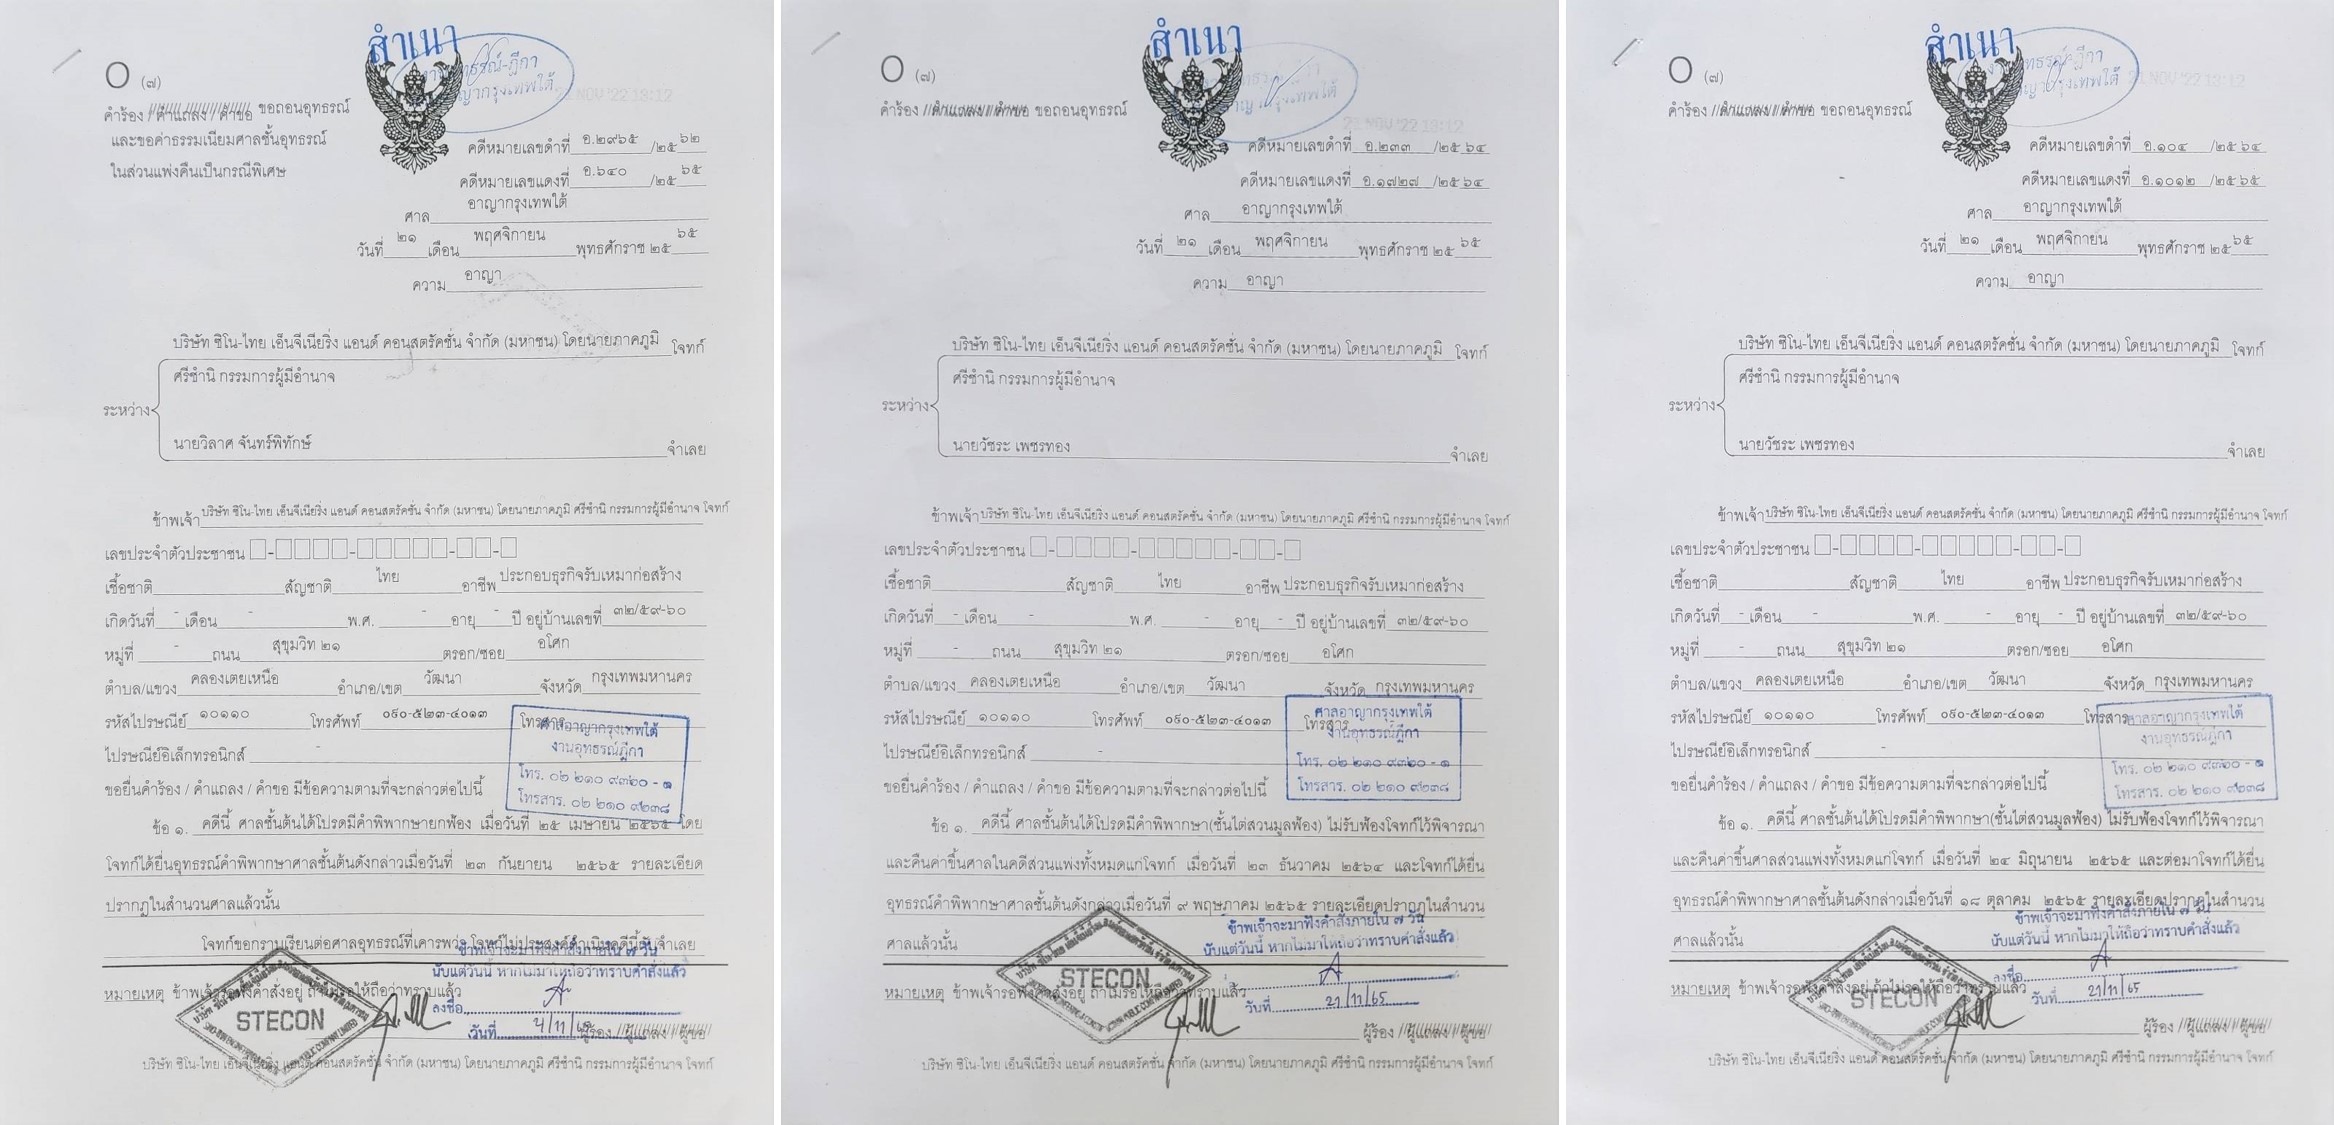 สำเนา
O (๗)
คำร้อง ขอถอนอุทธรณ์
และขอค่าธรรมเนียมศาลชั้นอุทธรณ์
ในส่วนแพ่งคืนเป็นกรณีพิเศษ
คดีหมายเลขดำที่ อ.๒๙๖๕ /๒๕๖๒
คดีหมายเลขแดงที่ อ.๖๔๐ /๒๕๖๕
ศาล อาญากรุงเทพใต้
วันที่ ๒๑ เดือน พฤศจิกายน พุทธศักราช ๒๕๖๕
ความ อาญา
บริษัท ซิโน-ไทย เอ็นจีเนียริ่ง แอนด์ คอนสตรัคชั่น จำกัด (มหาชน) โดยนายภาคภูมิ โจทก์
ศรีชำนิ กรรมการผู้มีอำนาจ
ระหว่าง
นายวิลาศ จันทร์พิทักษ์ จำเลย
ข้าพเจ้า บริษัท ซิโน-ไทย เอ็นจีเนียริ่ง แอนด์ คอนสตรัคชั่น จำกัด (มหาชน) โดยนายภาคภูมิ ศรีชำนิ กรรมการผู้มีอำนาจ โจทก์
เลขประจำตัวประชาชน
เชื้อชาติ สัญชาติ ไทย อาชีพ ประกอบธุรกิจรับเหมาก่อสร้าง
เกิดวันที่ - เดือน - พ.ศ. - อายุ - ปี อยู่บ้านเลขที่ ๓๒/๕๙-๖๐
หมู่ที่ - ถนน สุขุมวิท ๒๑ ตรอก/ซอย อโศก
ตำบล/แขวง คลองเตยเหนือ อำเภอ/เขต วัฒนา จังหวัด กรุงเทพมหานคร
รหัสไปรษณีย์ ๑๐๑๑๐ โทรศัพท์ ๐๙๐-๕๒๓-๔๐๑๓ โทรสาร
ไปรษณีย์อิเล็กทรอนิกส์ -
ศาลอาญากรุงเทพใต้
งานอุทธรณ์ฎีกา
โทร. ๐๒ ๒๑๐ ๙๓๖๐ - ๑
โทรสาร. ๐๒ ๒๑๐ ๙๒๓๘
ขอยื่นคำร้อง / คำแถลง / คำขอ มีข้อความตามที่จะกล่าวต่อไปนี้
ข้อ ๑. คดีนี้ ศาลชั้นต้นได้โปรดมีคำพิพากษายกฟ้อง เมื่อวันที่ ๒๕ เมษายน ๒๕๖๕ โดย
โจทก์ได้ยื่นอุทธรณ์คำพิพากษาศาลชั้นต้นดังกล่าวเมื่อวันที่ ๒๓ กันยายน ๒๕๖๕ รายละเอียด
ปรากฏในสำนวนศาลแล้วนั้น
โจทก์ขอกราบเรียนต่อศาลอุทธรณ์ที่เคารพว่า โจทก์ไม่ประสงค์ดำเนินคดีนี้กับจำเลย
ข้าพเจ้าจะมาฟังคำสั่งภายใน ๗ วัน
นับแต่วันนี้ หากไม่มาให้ถือว่าทราบคำสั่งแล้ว
หมายเหตุ ข้าพเจ้ารอฟังคำสั่งอยู่ ถ้าไม่รอให้ถือว่าทราบแล้ว
ลงชื่อ
STECON
วันที่
ผู้ร้อง
บริษัท ซิโน-ไทย เอ็นจีเนียริ่ง แอนด์ คอนสตรัคชั่น จำกัด (มหาชน) โดยนายภาคภูมิ ศรีชำนิ กรรมการผู้มีอำนาจ โจทก์
สำเนา
O (๗)
คำร้อง ขอถอนอุทธรณ์
21 NOV '22 13:12
คดีหมายเลขดำที่ อ.๒๓๓ /๒๕๖๔
คดีหมายเลขแดงที่ อ.๑๗๒๗ /๒๕๖๔
ศาล อาญากรุงเทพใต้
วันที่ ๒๑ เดือน พฤศจิกายน พุทธศักราช ๒๕๖๕
ความ อาญา
บริษัท ซิโน-ไทย เอ็นจีเนียริ่ง แอนด์ คอนสตรัคชั่น จำกัด (มหาชน) โดยนายภาคภูมิ โจทก์
ศรีชำนิ กรรมการผู้มีอำนาจ
ระหว่าง
นายวัชระ เพชรทอง จำเลย
ข้าพเจ้า บริษัท ซิโน-ไทย เอ็นจีเนียริ่ง แอนด์ คอนสตรัคชั่น จำกัด (มหาชน) โดยนายภาคภูมิ ศรีชำนิ กรรมการผู้มีอำนาจ โจทก์
เลขประจำตัวประชาชน
เชื้อชาติ สัญชาติ ไทย อาชีพ ประกอบธุรกิจรับเหมาก่อสร้าง
เกิดวันที่ - เดือน - พ.ศ. - อายุ - ปี อยู่บ้านเลขที่ ๓๒/๕๙-๖๐
หมู่ที่ - ถนน สุขุมวิท ๒๑ ตรอก/ซอย อโศก
ตำบล/แขวง คลองเตยเหนือ อำเภอ/เขต วัฒนา จังหวัด กรุงเทพมหานคร
รหัสไปรษณีย์ ๑๐๑๑๐ โทรศัพท์ ๐๙๐-๕๒๓-๔๐๑๓ โทรสาร
ไปรษณีย์อิเล็กทรอนิกส์ -
ศาลอาญากรุงเทพใต้
งานอุทธรณ์ฎีกา
โทร. ๐๒ ๒๑๐ ๙๓๖๐ - ๑
โทรสาร. ๐๒ ๒๑๐ ๙๒๓๘
ขอยื่นคำร้อง / คำแถลง / คำขอ มีข้อความตามที่จะกล่าวต่อไปนี้
ข้อ ๑. คดีนี้ ศาลชั้นต้นได้โปรดมีคำพิพากษา(ชั้นไต่สวนมูลฟ้อง) ไม่รับฟ้องโจทก์ไว้พิจารณา
และคืนค่าขึ้นศาลในคดีส่วนแพ่งทั้งหมดแก่โจทก์ เมื่อวันที่ ๒๓ ธันวาคม ๒๕๖๔ และโจทก์ได้ยื่น
อุทธรณ์คำพิพากษาศาลชั้นต้นดังกล่าวเมื่อวันที่ ๙ พฤษภาคม ๒๕๖๕ รายละเอียดปรากฏในสำนวน
ศาลแล้วนั้น
ข้าพเจ้าจะมาฟังคำสั่งภายใน ๗ วัน
นับแต่วันนี้ หากไม่มาให้ถือว่าทราบคำสั่งแล้ว
หมายเหตุ ข้าพเจ้ารอฟังคำสั่งอยู่ ถ้าไม่รอให้ถือว่าทราบแล้ว
STECON
วันที่ 21/11/65
ผู้ร้อง
บริษัท ซิโน-ไทย เอ็นจีเนียริ่ง แอนด์ คอนสตรัคชั่น จำกัด (มหาชน) โดยนายภาคภูมิ ศรีชำนิ กรรมการผู้มีอำนาจ โจทก์
สำเนา
O (๗)
คำร้อง ขอถอนอุทธรณ์
คดีหมายเลขดำที่ อ.๑๐๔ /๒๕๖๔
คดีหมายเลขแดงที่ อ.๑๐๑๒ /๒๕๖๕
ศาล อาญากรุงเทพใต้
วันที่ ๒๑ เดือน พฤศจิกายน พุทธศักราช ๒๕๖๕
ความ อาญา
บริษัท ซิโน-ไทย เอ็นจีเนียริ่ง แอนด์ คอนสตรัคชั่น จำกัด (มหาชน) โดยนายภาคภูมิ โจทก์
ศรีชำนิ กรรมการผู้มีอำนาจ
ระหว่าง
นายวัชระ เพชรทอง จำเลย
ข้าพเจ้า บริษัท ซิโน-ไทย เอ็นจีเนียริ่ง แอนด์ คอนสตรัคชั่น จำกัด (มหาชน) โดยนายภาคภูมิ ศรีชำนิ กรรมการผู้มีอำนาจ โจทก์
เลขประจำตัวประชาชน
เชื้อชาติ สัญชาติ ไทย อาชีพ ประกอบธุรกิจรับเหมาก่อสร้าง
เกิดวันที่ - เดือน - พ.ศ. - อายุ - ปี อยู่บ้านเลขที่ ๓๒/๕๙-๖๐
หมู่ที่ - ถนน สุขุมวิท ๒๑ ตรอก/ซอย อโศก
ตำบล/แขวง คลองเตยเหนือ อำเภอ/เขต วัฒนา จังหวัด กรุงเทพมหานคร
รหัสไปรษณีย์ ๑๐๑๑๐ โทรศัพท์ ๐๙๐-๕๒๓-๔๐๑๓ โทรสาร
ไปรษณีย์อิเล็กทรอนิกส์ -
ศาลอาญากรุงเทพใต้
งานอุทธรณ์ฎีกา
โทร. ๐๒ ๒๑๐ ๙๓๖๐ - ๑
โทรสาร. ๐๒ ๒๑๐ ๙๒๓๘
ขอยื่นคำร้อง / คำแถลง / คำขอ มีข้อความตามที่จะกล่าวต่อไปนี้
ข้อ ๑. คดีนี้ ศาลชั้นต้นได้โปรดมีคำพิพากษา(ชั้นไต่สวนมูลฟ้อง) ไม่รับฟ้องโจทก์ไว้พิจารณา
และคืนค่าขึ้นศาลส่วนแพ่งทั้งหมดแก่โจทก์ เมื่อวันที่ ๒๔ มิถุนายน ๒๕๖๕ และต่อมาโจทก์ได้ยื่น
อุทธรณ์คำพิพากษาศาลชั้นต้นดังกล่าวเมื่อวันที่ ๑๘ ตุลาคม ๒๕๖๕ รายละเอียดปรากฏในสำนวน
ศาลแล้วนั้น
ข้าพเจ้าจะมาฟังคำสั่งภายใน ๗ วัน
นับแต่วันนี้ หากไม่มาให้ถือว่าทราบคำสั่งแล้ว
ลงชื่อ
หมายเหตุ ข้าพเจ้ารอฟังคำสั่งอยู่ ถ้าไม่รอให้ถือว่าทราบแล้ว
STECON
วันที่ 21/11/65
ผู้ร้อง
บริษัท ซิโน-ไทย เอ็นจีเนียริ่ง แอนด์ คอนสตรัคชั่น จำกัด (มหาชน) โดยนายภาคภูมิ ศรีชำนิ กรรมการผู้มีอำนาจ โจทก์